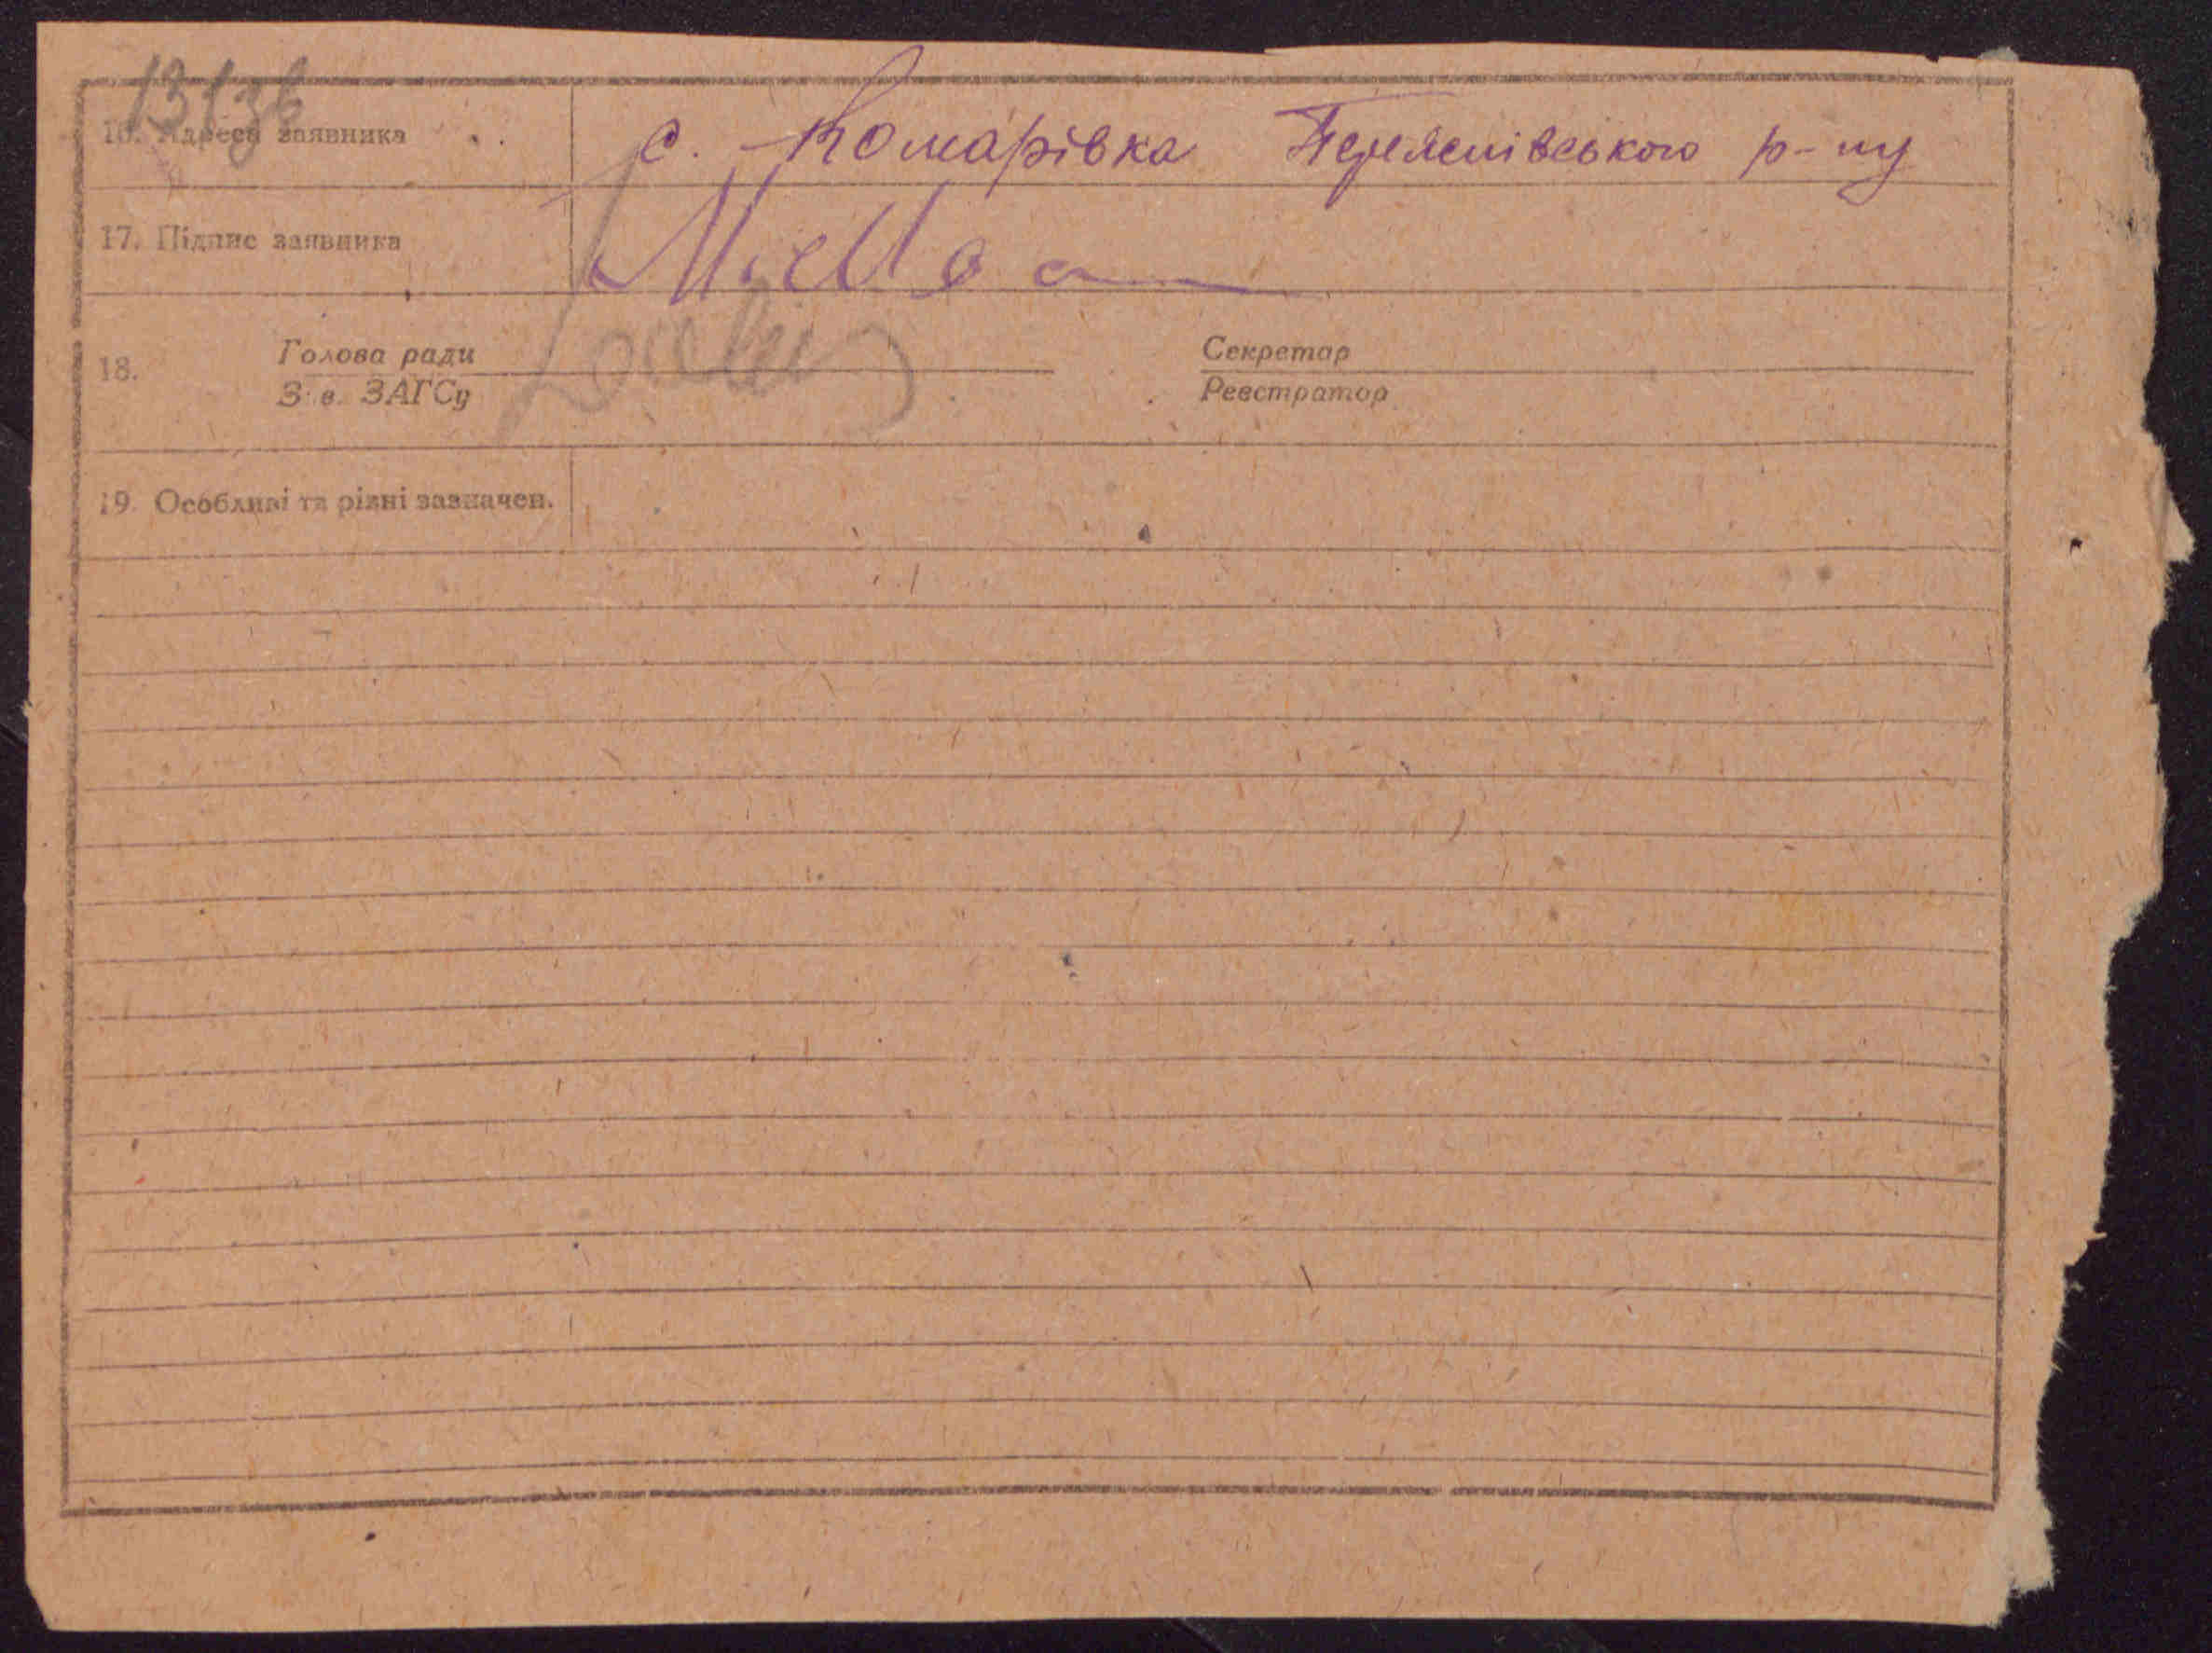 16. Адреса заявника . . с. Комарівка Переяснівського р-ну
17. Підпис заявника
18. Голова ради Секретар
Зав. ЗАГСу Реєстратор
19. Особливі та різні зазначен.